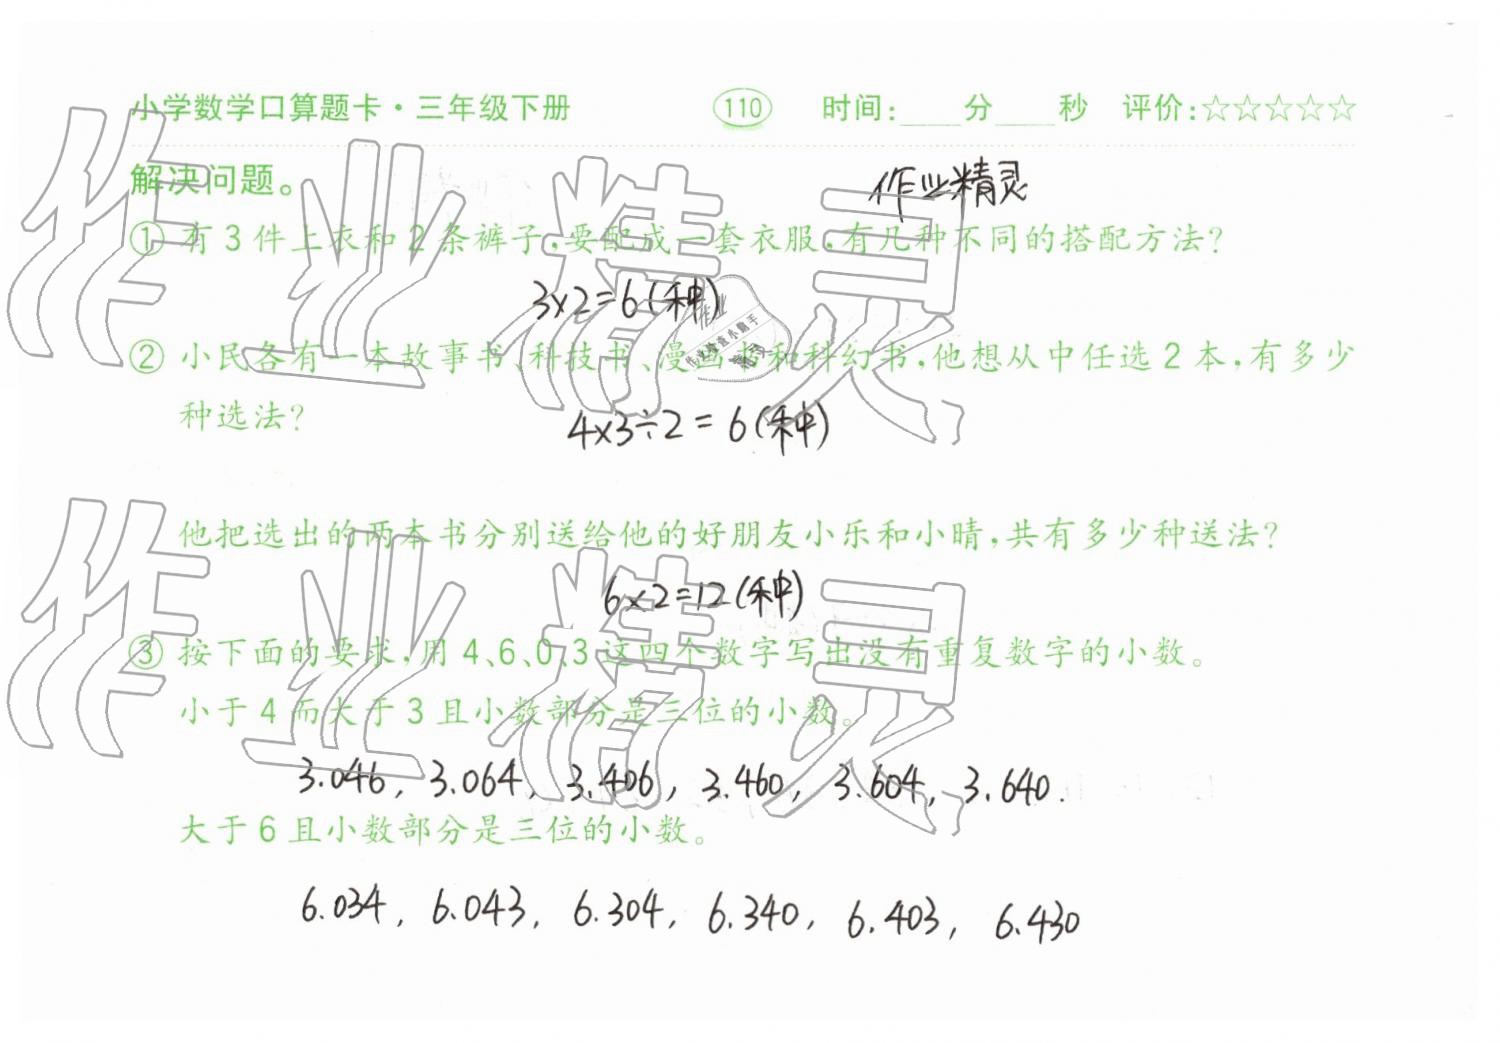 小学数学口算题卡·三年级下册 110 时间:____分____秒 评价:☆☆☆☆☆
解决问题。
作业精灵
① 有3件上衣和2条裤子,要配成一套衣服,有几种不同的搭配方法?
3×2=6(种)
② 小民各有一本故事书、科技书、漫画书和科幻书,他想从中任选2本,有多少
种选法?
4×3÷2=6(种)
作业精灵
作业检查小助手
精灵
他把选出的两本书分别送给他的好朋友小乐和小晴,共有多少种送法?
6×2=12(种)
③ 按下面的要求,用4、6、0、3这四个数字写出没有重复数字的小数。
小于4而大于3且小数部分是三位的小数。
3.046, 3.064, 3.406, 3.460, 3.604, 3.640.
大于6且小数部分是三位的小数。
6.034, 6.043, 6.304, 6.340, 6.403, 6.430
作业精灵